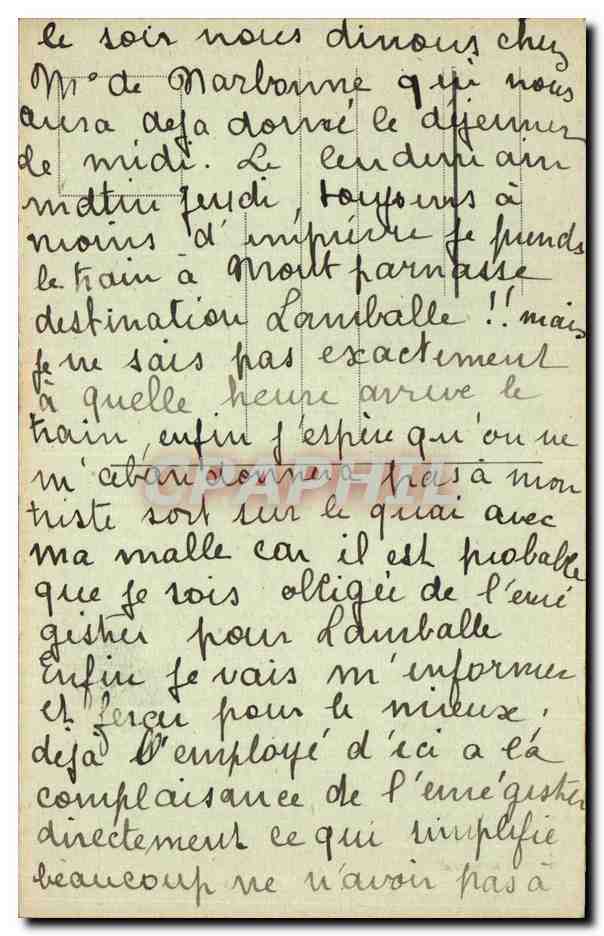 le soir nous dinons chez
Me de Narbonne qui nous
aura deja donné le dejeuner
de midi. Le lendemain
matin jeudi, toujours à
moins d'imprévu je prends
le train à Montparnasse
destination Lamballe !! mais
je ne sais pas exactement
à quelle heure arrive le
train, enfin j'espère qu'on ne
m'abandonnera pas à mon
triste sort sur le quai avec
ma malle car il est probable
que je sois obligée de l'enré
gistrer pour Lamballe
Enfin je vais m'informer
et ferai pour le mieux,
déjà l'employé d'ici a la
complaisance de l'enrégistrer
directement ce qui simplifie
beaucoup ne n'avoir pas à
CPAPHIL